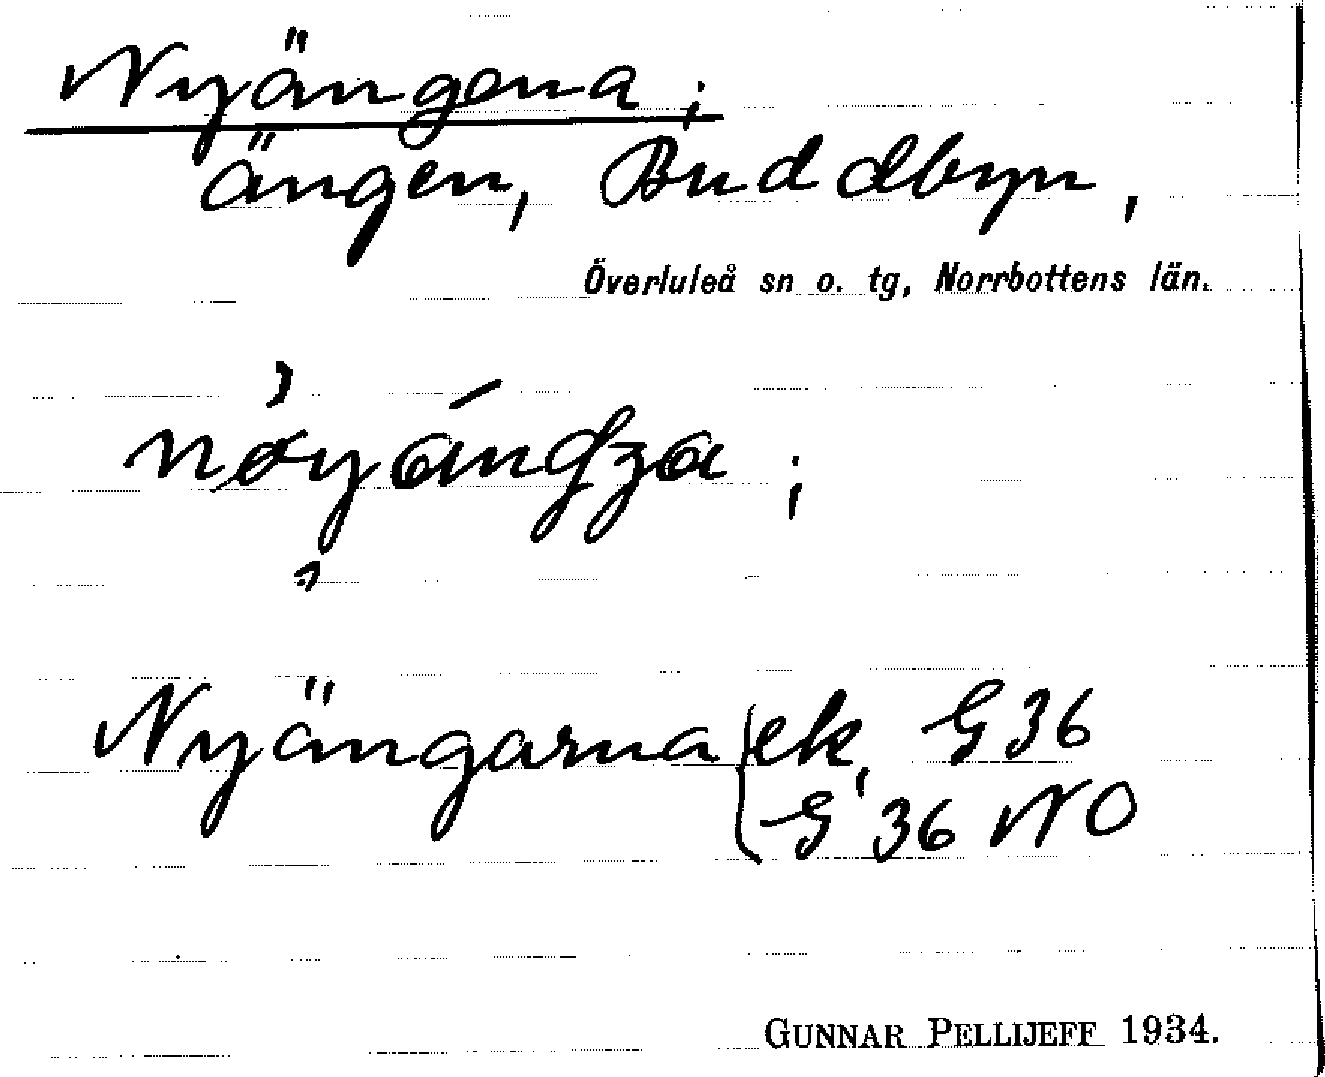 Nyängena;
ängen, Buddbyn,
Överluleå sn o. tg, Norrbottens län.
Nyängarna {ek, G 36
G 36 NO
GUNNAR PELLIJEFF 1934.